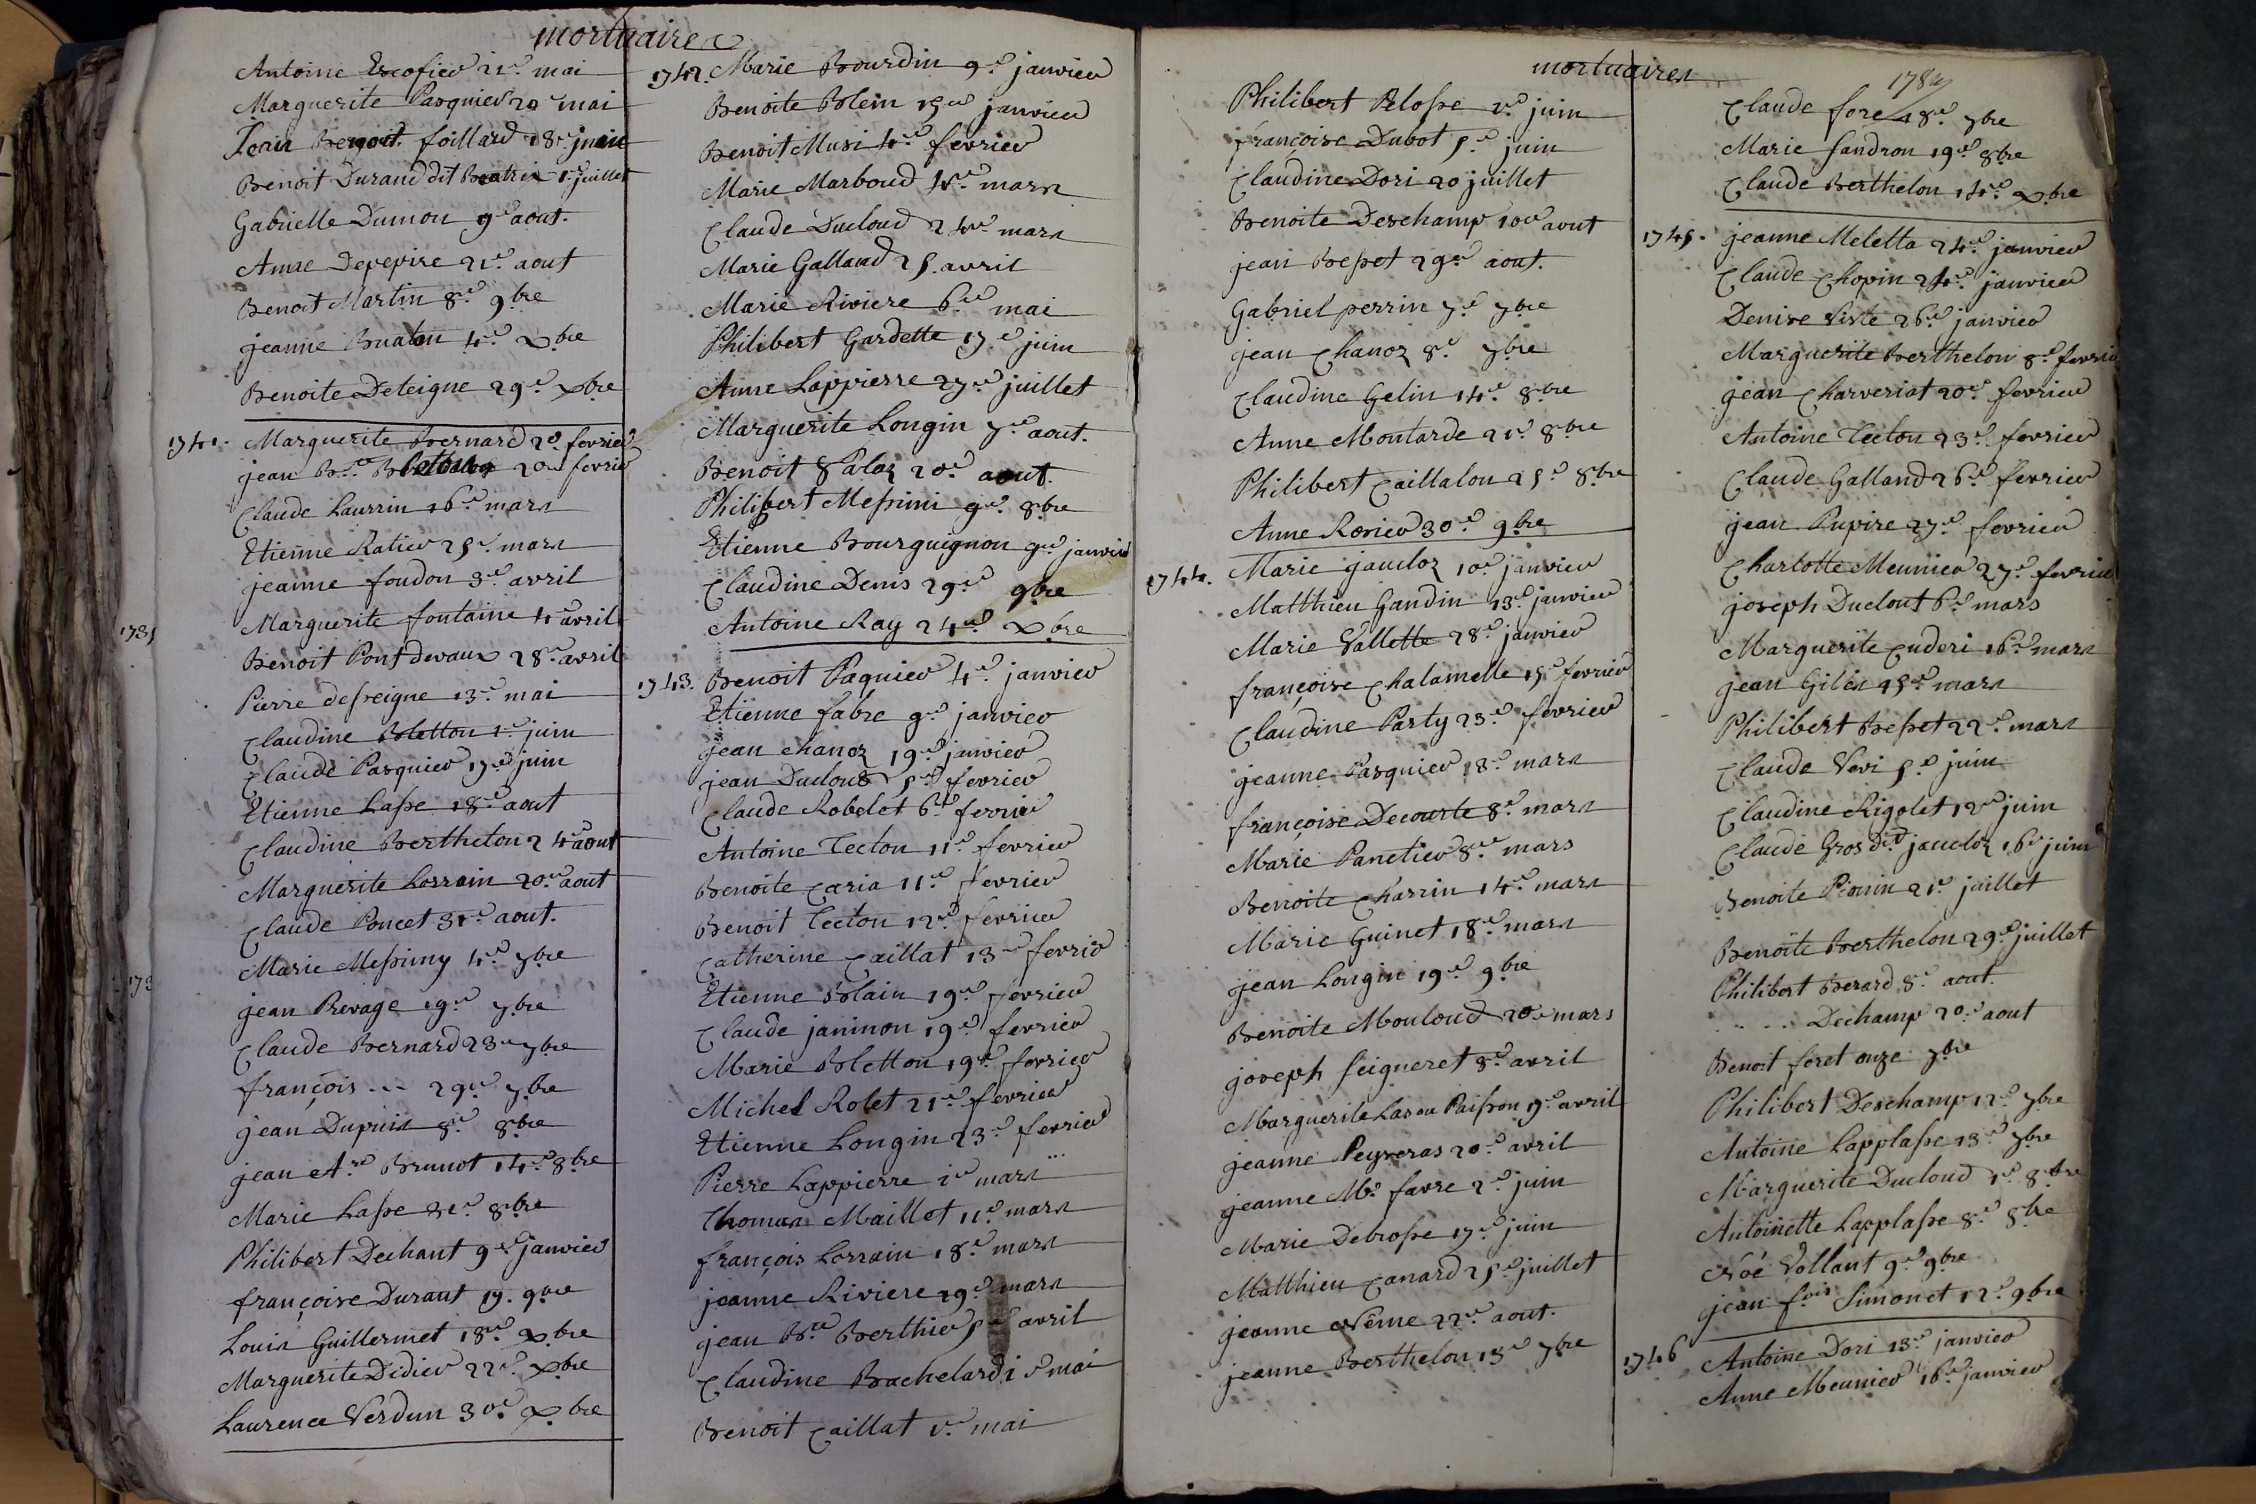 mortuaires
Antoine Escofier 21e mai
Marguerite Pasquier 20e mai
Benoit foillard 18e juin
Benoit Durand dit Beatrix 1er juillet
Gabrielle Dumon 9e aout.
Anne Depepire 21e aout
Benoit Martin 8e 9bre
jeanne Bnaton 4e xbre
Benoite Deteigne 29e xbre
1741. Marguerite Bernard 20 fevrier
jean Bte 20e fevrier
Claude Laurrin 16e mars
Etienne Ratier 25e mars
jeanne foudon 3e avril
Marguerite fontaine 4e avril
Benoit Pont devaux 28e avril
Pierre desseigne 13e mai
Claudine Bletton 1er juin
Claude Pasquier 17e juin
Etienne Lasse 18e aout
Claudine Berthelon 24e aout
Marguerite Lorrain 20e aout
Claude Poncet 31e aout.
Marie Messimy 4e 7bre
jean Revage 19e 7bre
Claude Bernard 23e 7bre
françois ... 29e 7bre
jean Dupuis 8e 8bre
jean Ane Brunot 14e 8bre
Marie Lasse 31e 8bre
Philibert Dechant 9e janvier
françoise Durant 19. 9bre
Louis Guillermet 18e xbre
Marguerite Didier 22e xbre
Laurence Verdun 30e xbre
1742. Marie Bourdin 9e janvier
Benoite Blein 15e janvier
Benoit Musi 4e fevrier
Marie Marboud 4e mars
Claude Ducloud 24e mars
Marie Galland 25. avril
Marie Riviere 6e mai
Philibert Gardette 17e juin
Anne Lappierre 27e juillet
Marguerite Longin 7e aout.
Benoit 20e aout.
Philibert Messimi 9e 8bre
Etienne Bourguignon 9e janvier
Claudine Denis 29e 9bre
Antoine Ray 24e xbre
1743. Benoit Paquier 4e janvier
Etienne fabre 9e janvier
jean chanoz 19e janvier
jean Ducloud 5e fevrier
Claude Robelet 6e fevrier
Antoine Tecton 11e fevrier
Benoite Caria 11e fevrier
Benoit Tecton 12e fevrier
Catherine Caillat 13e fevrier
Etienne Blain 19e fevrier
Claude janinon 19e fevrier
Marie Bletton 19e fevrier
Michel Rolet 21e fevrier
Etienne Longin 23e fevrier
Pierre Lappierre 1er mars
Thomas Maillet 11e mars
françois Lorrain 18e mars
jeanne Riviere 29e mars
jean Bte Berthier 5e avril
Claudine Bachelard 1er mai
Benoit Caillat 1er mai
mortuaires
Philibert Pelosse 1er juin
françoise Dubot 5e juin
Claudine Dori 20 juillet
Benoite Deschamp 10e aout
jean Besset 29e aout.
Gabriel perrin 7e 7bre
jean Chanoz 8e 7bre
Claudine Gelin 14e 8bre
Anne Montarde 21e 8bre
Philibert Caillalon 25e 8bre
Anne Rosier 30e 9bre
1744. Marie jaucloz 10e janvier
Matthieu Gandin 13e janvier
Marie Vallette 28e janvier
françoise Chalamelle 15e fevrier
Claudine Party 23e fevrier
jeanne Pasquier 18e mars
françoise Decourte 8e mars
Marie Panetier 8e mars
Benoite Charrin 14e mars
Marie Guinet 18e mars
jean Longin 19e 9bre
Benoite Mouloud 20e mars
joseph Seigneret 8e avril
Marguerite Las ou Paisson 19e avril
jeanne Peyseras 20e avril
jeanne Me favre 2e juin
Marie Debrosse 17e juin
Matthieu Canard 25e juillet
jeanne Neme 22e aout.
jeanne Berthelon 13e 7bre
1784
Claude fore 18e 7bre
Marie Sandron 19e 8bre
Claude Berthelon 14e xbre
1745. jeanne Meletta 24e janvier
Claude Chopin 24e janvier
Denise Viste 26e janvier
Marguerite Berthelon 8e fevrier
jean Charveriat 20e fevrier
Antoine Tecton 23e fevrier
Claude Galland 26e fevrier
jean Pupire 27e fevrier
Charlotte Meunier 27e fevrier
joseph Duclout 6e mars
Marguerite Cuderi 16e mars
jean Giles 15e mars
Philibert Besset 22e mars
Claude Veri 5e juin
Claudine Rigolet 12e juin
Claude Gros dit jaucloz 16e juin
Benoite Pionin 21e juillet
Benoite Berthelon 29e juillet
Philibert Berard 8e aout.
..... Dechamp 20e aout
Benoit feret onze 7bre
Philibert Deschamp 12e 7bre
Antoine Lapplasse 13e 7bre
Marguerite Ducloud 1er 8bre
Antoinette Lapplasse 8e 8bre
Noé Vollant 9e 9bre
jean fois Simonet 12e 9bre
1746 Antoine Dori 13e janvier
Anne Meunier 16e janvier
1735
173